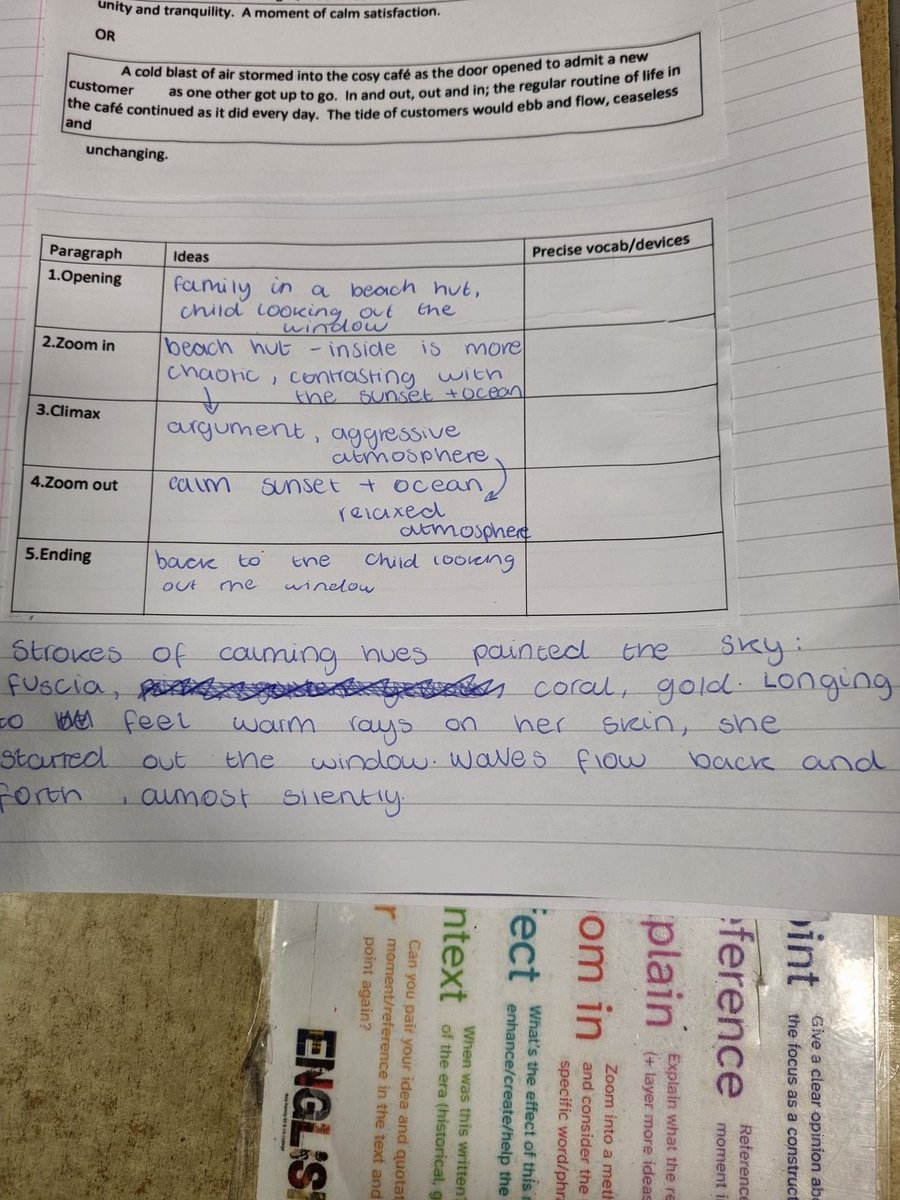 unity and tranquility. A moment of calm satisfaction.
OR
A cold blast of air stormed into the cosy café as the door opened to admit a new
customer as one other got up to go. In and out, out and in; the regular routine of life in
the café continued as it did every day. The tide of customers would ebb and flow, ceaseless
and
unchanging.
Paragraph Ideas Precise vocab/devices
1.Opening
family in a beach hut,
child looking out the
window
2.Zoom in
beach hut - inside is more
chaotic, contrasting with
the sunset + ocean
3.Climax
argument, aggressive
atmosphere
4.Zoom out
calm sunset + ocean
relaxed
atmosphere
5.Ending
back to the child looking
out the window
Strokes of calming hues painted the sky:
fuscia, coral, gold. Longing
to feel warm rays on her skin, she
starred out the window. Waves flow back and
forth, almost silently.
Point
Give a clear opinion
the focus as a
Reference
moment
Explain
Explain what the
(+ layer more ideas
Zoom in
Zoom into a
and consider the
specific
Effect
What's the effect of this
enhance/create/help the
Context
When was this written
of the era (historical,
Can you pair your idea and
moment/reference in the text and
point again?
ENGLiS